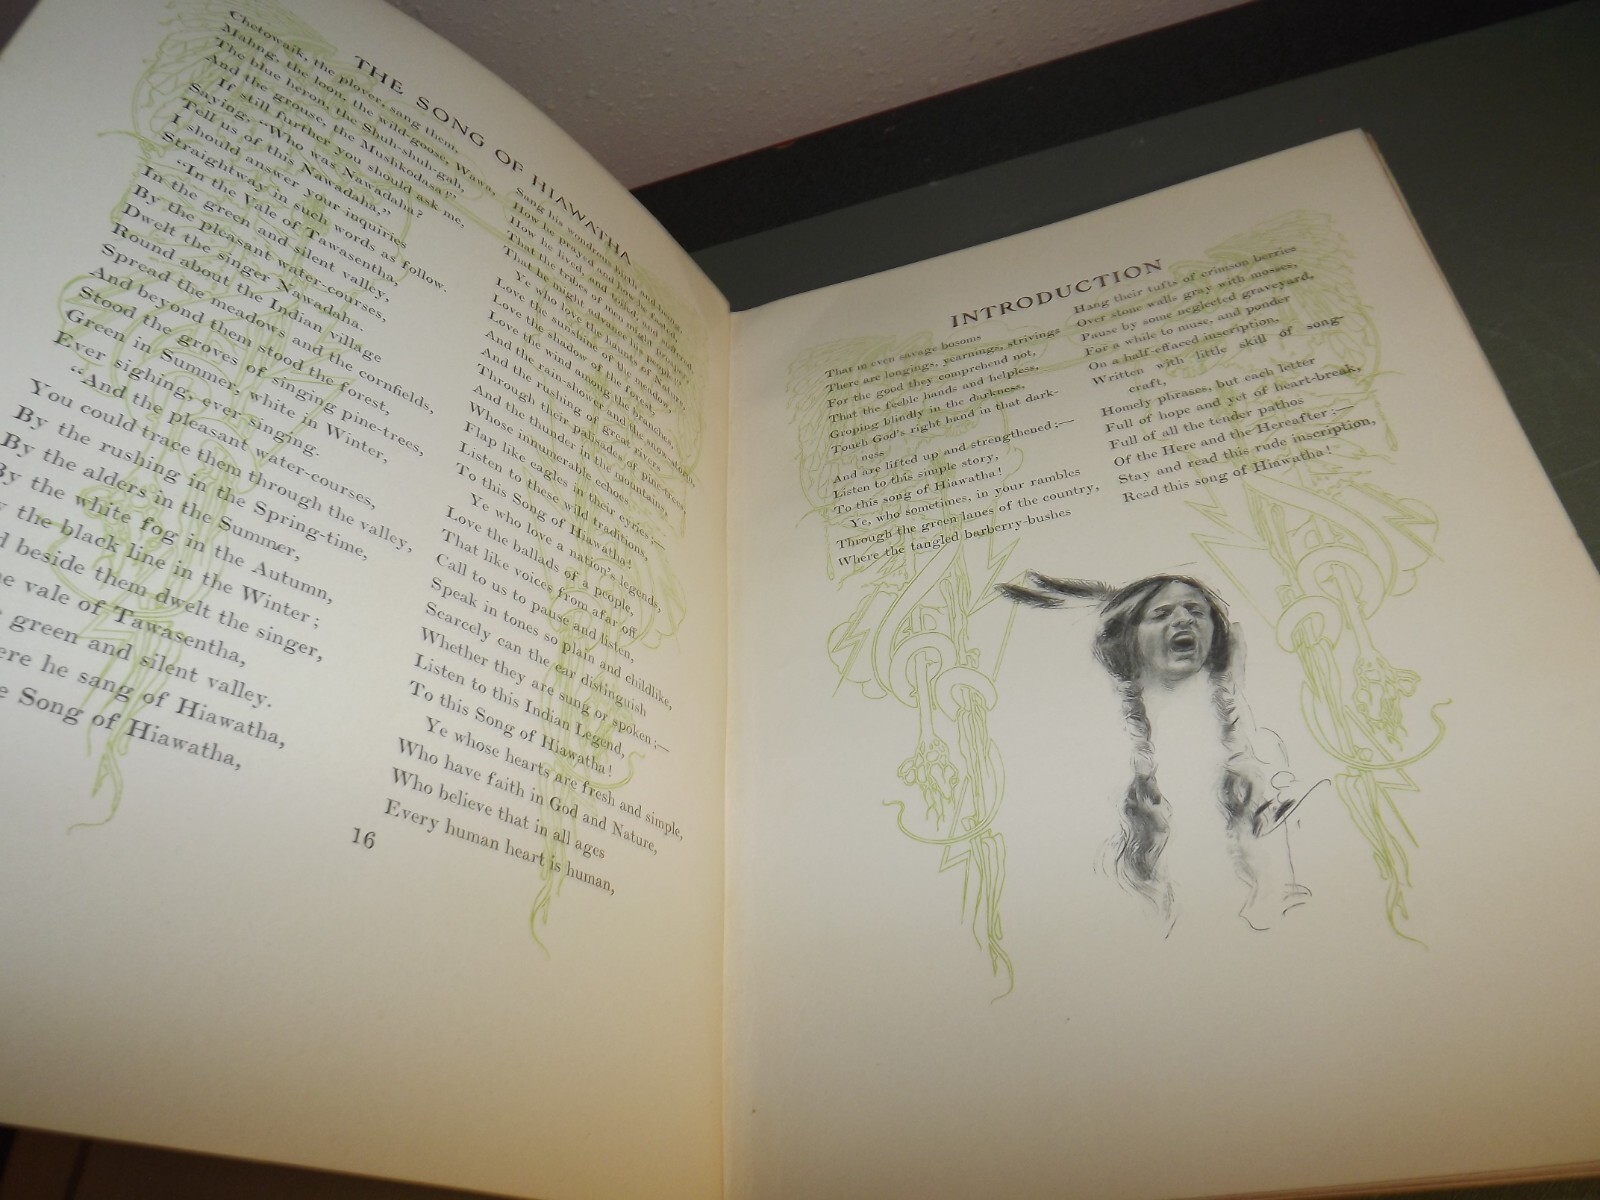 THE SONG OF HIAWATHA
Chetowaik, the plover, sang them,
Mahng, the loon, the wild-goose, Wawa,
The blue heron, the Shuh-shuh-gah,
And the grouse, the Mushkodasa!"
If still further you should ask me,
Saying, "Who was Nawadaha?
Tell us of this Nawadaha,"
I should answer your inquiries
Straightway in such words as follow.
"In the Vale of Tawasentha,
In the green and silent valley,
By the pleasant water-courses,
Dwelt the singer Nawadaha.
Round about the Indian village
Spread the meadows and the cornfields,
And beyond them stood the forest,
Stood the groves of singing pine-trees,
Green in Summer, white in Winter,
Ever sighing, ever singing.
"And the pleasant water-courses,
You could trace them through the valley,
By the rushing in the Spring-time,
By the alders in the Summer,
By the white fog in the Autumn,
the black line in the Winter;
beside them dwelt the singer,
vale of Tawasentha,
green and silent valley.
he sang of Hiawatha,
Song of Hiawatha,
Sang his wondrous birth and being,
How he prayed and how he fasted,
How he lived, and toiled, and suffered,
That the tribes of men might prosper,
That he might advance his people!"
Ye who love the haunts of Nature,
Love the sunshine of the meadow,
Love the shadow of the forest,
Love the wind among the branches,
And the rain-shower and the snow-storm,
And the rushing of great rivers
Through their palisades of pine-trees,
And the thunder in the mountains,
Whose innumerable echoes
Flap like eagles in their eyries;—
Listen to these wild traditions,
To this Song of Hiawatha!
Ye who love a nation's legends,
Love the ballads of a people,
That like voices from afar off
Call to us to pause and listen,
Speak in tones so plain and childlike,
Scarcely can the ear distinguish
Whether they are sung or spoken;—
Listen to this Indian Legend,
To this Song of Hiawatha!
Ye whose hearts are fresh and simple,
Who have faith in God and Nature,
Who believe that in all ages
Every human heart is human,
16
INTRODUCTION
That in even savage bosoms
There are longings, yearnings, strivings
For the good they comprehend not,
That the feeble hands and helpless,
Groping blindly in the darkness,
Touch God's right hand in that dark-
ness
And are lifted up and strengthened;—
Listen to this simple story,
To this song of Hiawatha!
Ye, who sometimes, in your rambles
Through the green lanes of the country,
Where the tangled barberry-bushes
Hang their tufts of crimson berries
Over stone walls gray with mosses,
Pause by some neglected graveyard,
For a while to muse, and ponder
On a half-effaced inscription,
Written with little skill of song-
craft,
Homely phrases, but each letter
Full of hope and yet of heart-break,
Full of all the tender pathos
Of the Here and the Hereafter;—
Stay and read this rude inscription,
Read this song of Hiawatha!